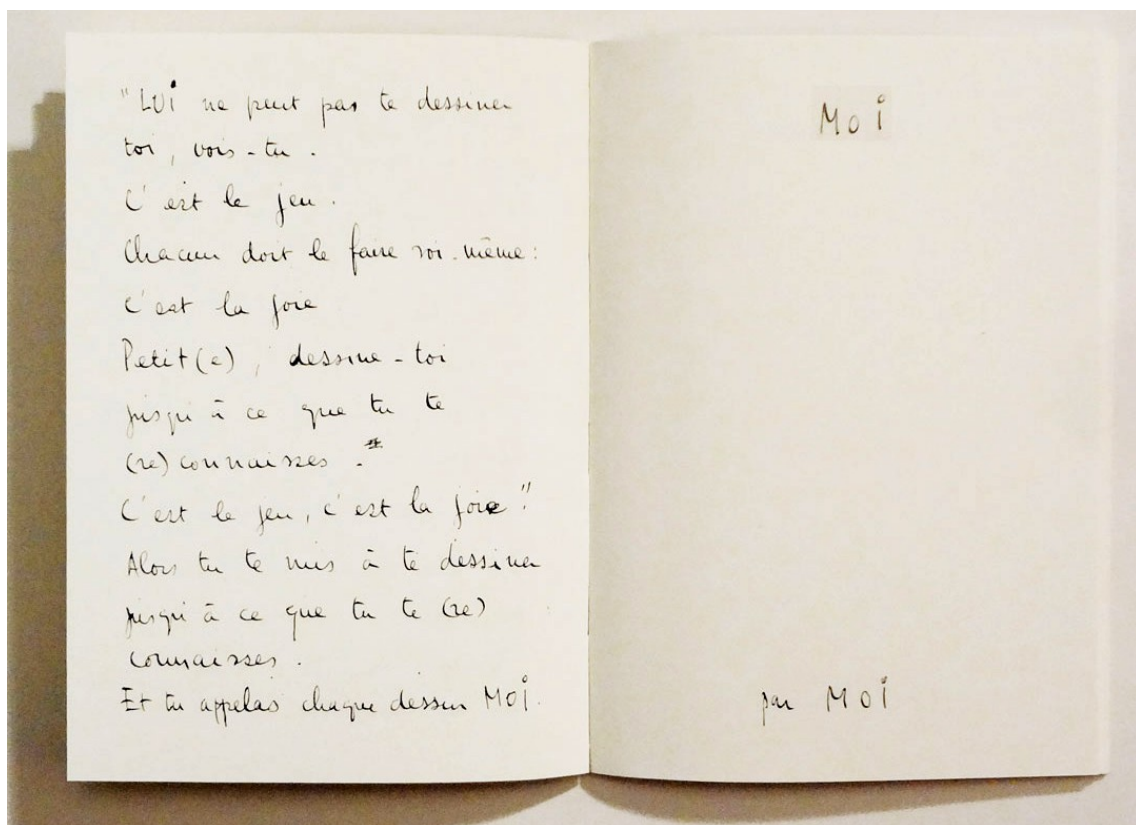 "LUi ne peut pas te dessiner
toi, vois-tu.
C'est le jeu.
Chacun doit le faire soi-même:
C'est la joie
Petit(e), dessine-toi
jusqu'à ce que tu te
(re)connaisses.
C'est le jeu, c'est la joie"
Alors tu te mis à te dessiner
jusqu'à ce que tu te (re)
connaisses.
Et tu appelas chaque dessin MOi.
MOi
par MOi